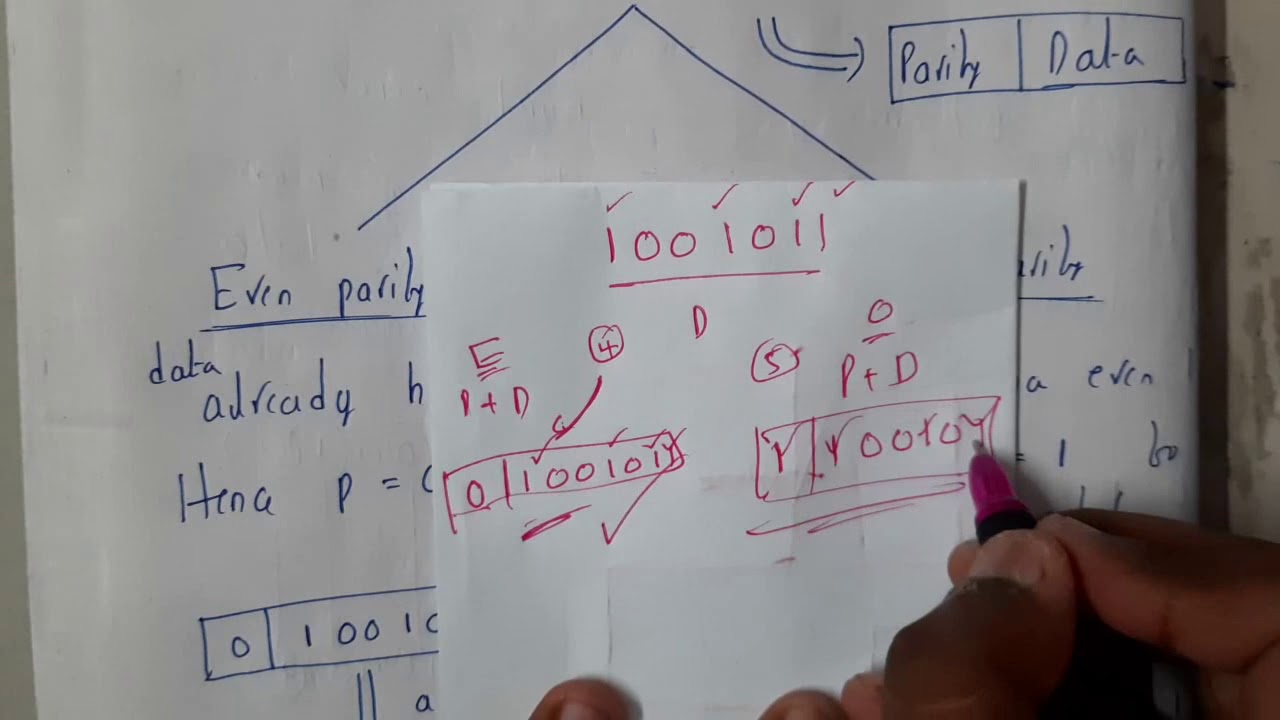 Parity Data
1001011
Even parity
data
already h
Hence p = 0
0 1001
a
E
P + D
4
D
0 1001011
O
5
P + D
1 100101
a even
= 1 to